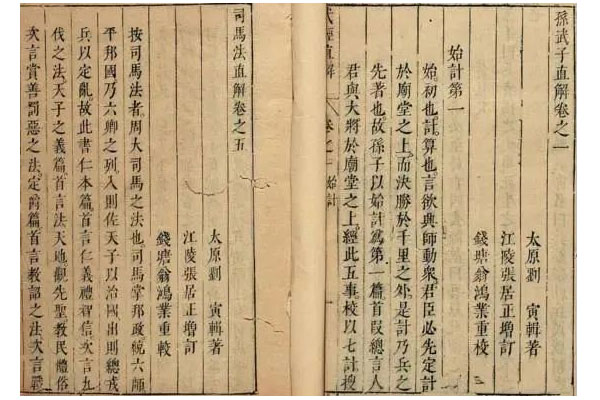 孫武子直解卷之一
太原劉　寅輯著
江陵張居正增訂
錢塘翁鴻業重校
始計第一
始初也計算也言欲興師動衆君臣必先定計
於廟堂之上而決勝於千里之外是計乃兵之
先著也故孫子以始計爲第一篇首段總言人
君與大將於廟堂之上經此五事校以七計搜
武經直解　卷之一　始計
司馬法直解卷之五
太原劉　寅輯著
江陵張居正增訂
錢塘翁鴻業重較
按司馬法者周大司馬之法也司馬掌邦政統六師
平邦國乃六卿之列入則佐天子以治國出則總戎
兵以定亂故此書仁本篇首言仁義禮智信次言九
伐之法天子之義篇首言法天地觀先聖教民體俗
次言賞善罰惡之法定爵篇首言教詔之法次言戰